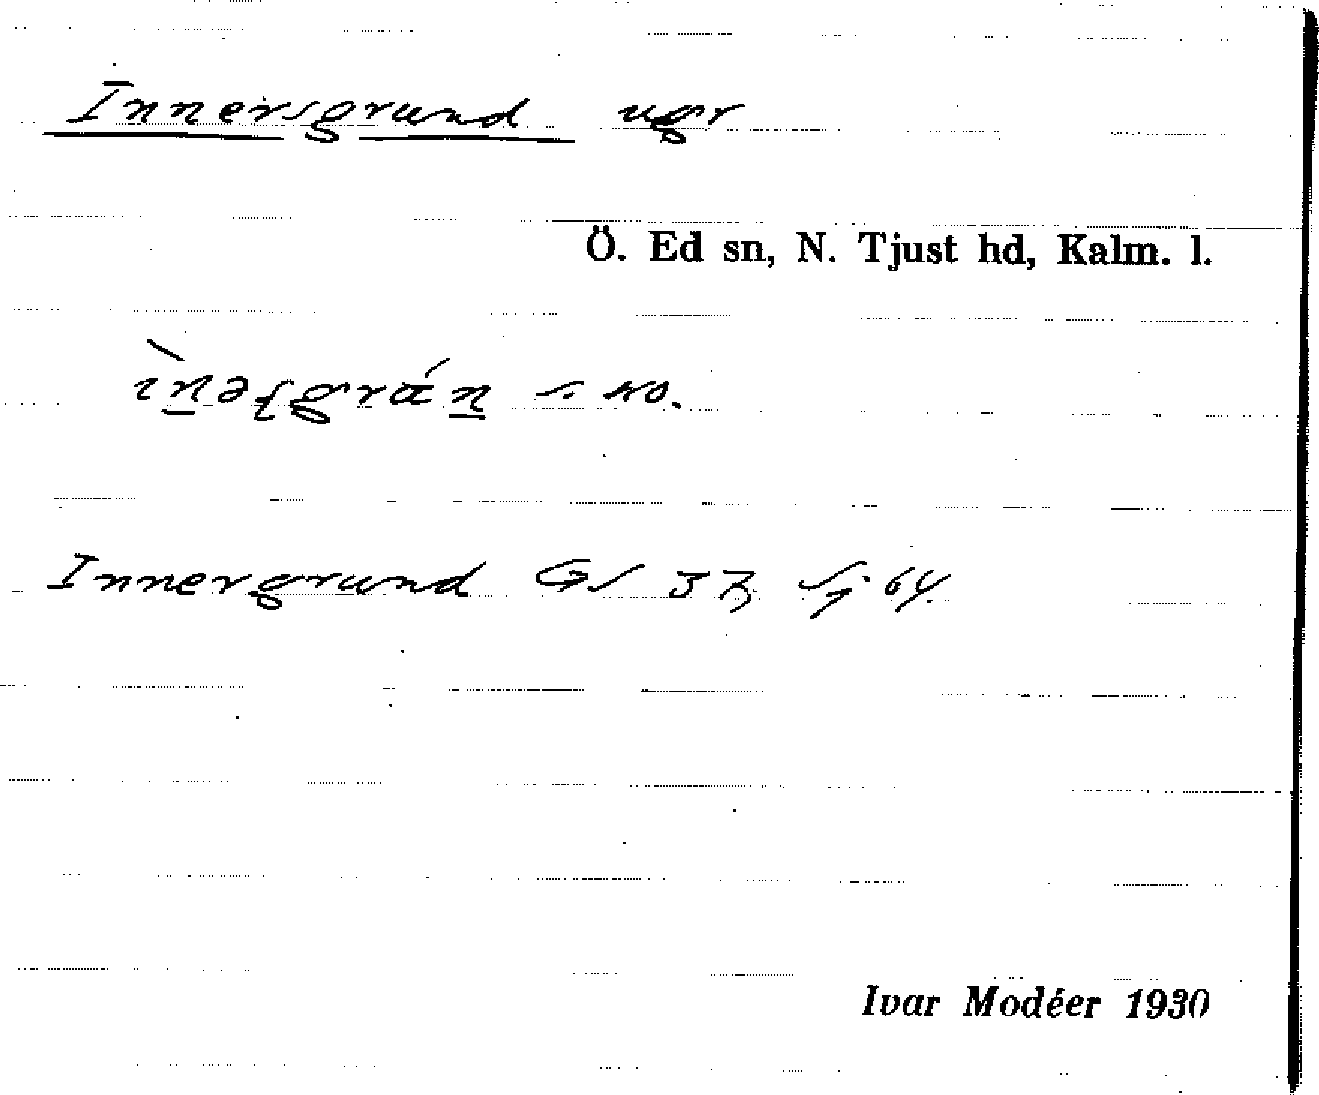 Innersgrund ugr
Ö. Ed sn, N. Tjust hd, Kalm. l.
s. no.
Innergrund GS 37, Sj 64.
Ivar Modéer 1930